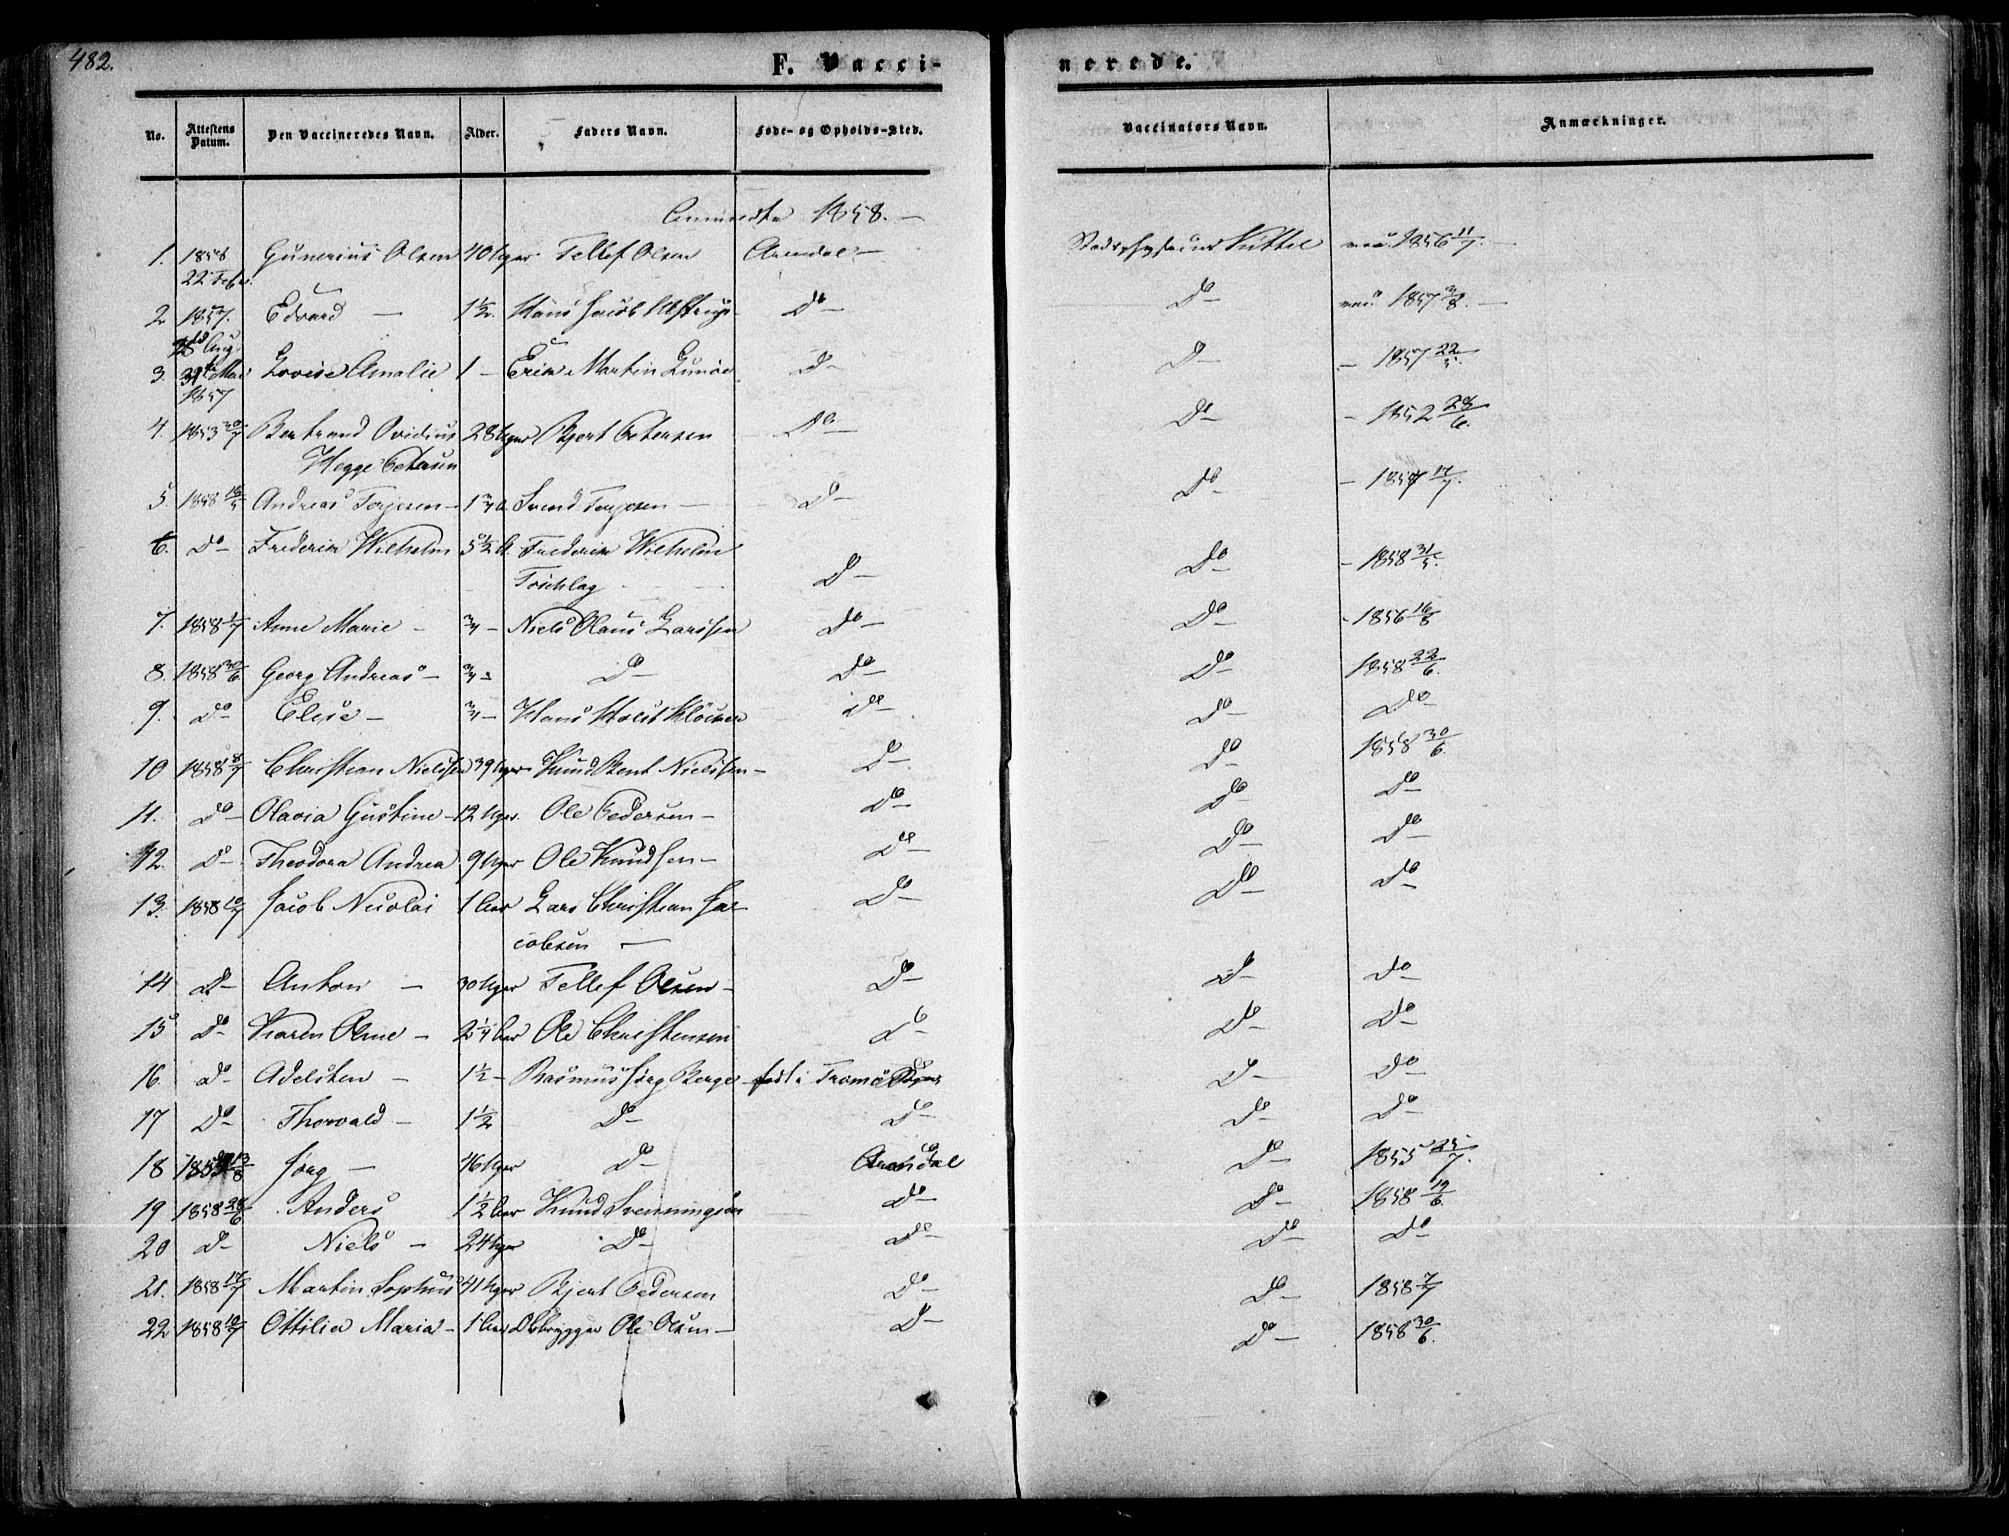 482.
F. Vacci-
nerede.
No.
Attestens Datum.
Den Vaccineredes Navn.
Alder.
Faders Navn.
Føde- og Opholds-Sted.
Vaccinators Navn.
Anmærkninger.
1858. —
1. 1858 Gunerius Olsen 40 Uger Tellef Olsen Arendal — 1856 11/7. —
22 Febr.
2 1857. Edvard — 1 1/2. Hans Jacob D° — D° — 1857 3/8. —
Aug.
3. 31 Mai Lovise Amalie 1 — Erik Martin D° — D° — — 1857 22/5.
1857
4. 1853 30/7 Bertrand Ovidius 28 Uger Bjert Petersen D° — D° — — 1852 28/6.
Hegge Petersen
5. 1858 Andreas Terjesen — 1 3/4 Svend Terjesen — D° — D° — — 1857 17/7.
6. D° — Frederik Wilhelm 5 1/2 Frederik Wilhelm D° — — 1858 31/5.
D° —
7. 1858 1/7 Anne Marie — 3/4 — Niels Olaus Larssen D° — D° — — 1856 16/8
8. 1858 30/6 Georg Andreas — 3/4 — D° — D° — D° — 1858 22/6.
9. D° — Elise — 3/4 — Hans Holst D° — D° — D° —
10 1858 8/7 Christian Nielssen 39 Uger Knud Bent Nielssen — D° — D° — 1858 30/6.
11. D° — Olavia Gustine — 12 Uger. Ole Pedersen — D° — D° — D° —
12. D° — Theodora Andrea 9 Uger Ole Knudsen — D° — D° — D° —
13. 1858 10/7 Jacob Nicolai 1 Aar Lars Christian Ja- D° — D° — D° —
cobsen —
14 D° — Anton — 30 Uger Tellef Olsen — D° — D° — D° —
15 D° — Karen Oline — 2 1/4 Aar Ole Christensen D° — D° — D° —
16. D° — Adelsten — 1 1/2 — Rasmus Jörg Berge — født i Tromö D° — D° —
17 D° — Thorvald — 1 1/2 D° — D° — D° — D° —
18 13/8 Jörg — 46 Uger D° — Arendal D° — 1855 25/7.
19 1858 28/6 Anders 1 1/2 Aar Knud Svenningsen D° — D° — 1858 19/6.
20 D° — Niels — 24 Uger D° — D° — D° — D° —
21. 1858 17/7 Martin Sophus 41 Uger Bjert Pedersen D° — D° — 1858 7/7
22 1858 10/7 Ottilia Maria — 1 Aar Ole Olsen — D° — D° — 1858 30/6.